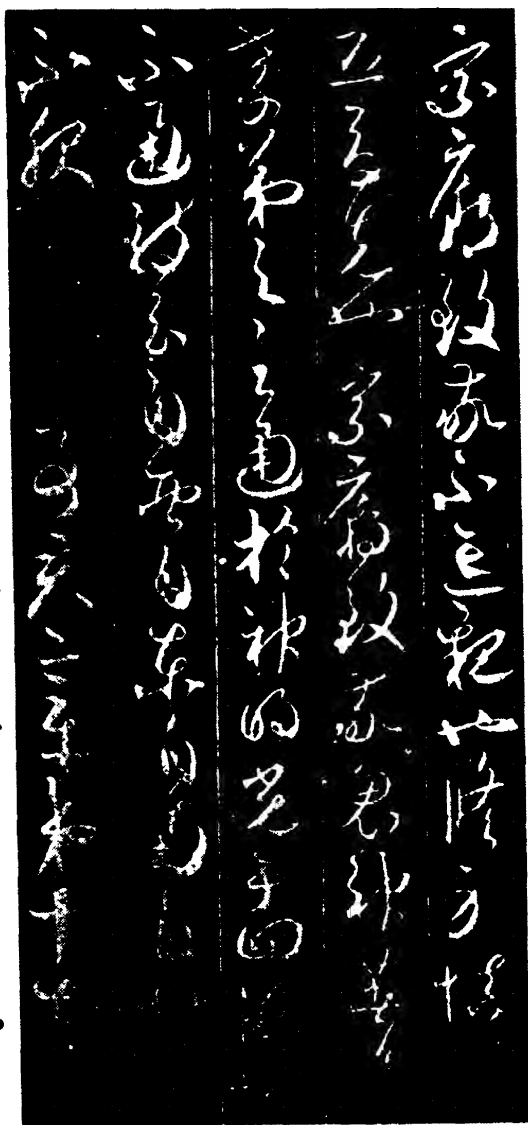 宗廟致敬不忘親也修身慎
行恐辱先也宗廟致敬鬼神著
矣孝弟之至通於神明光于四海
不通詩云自西自東自南自
不服 章第十七